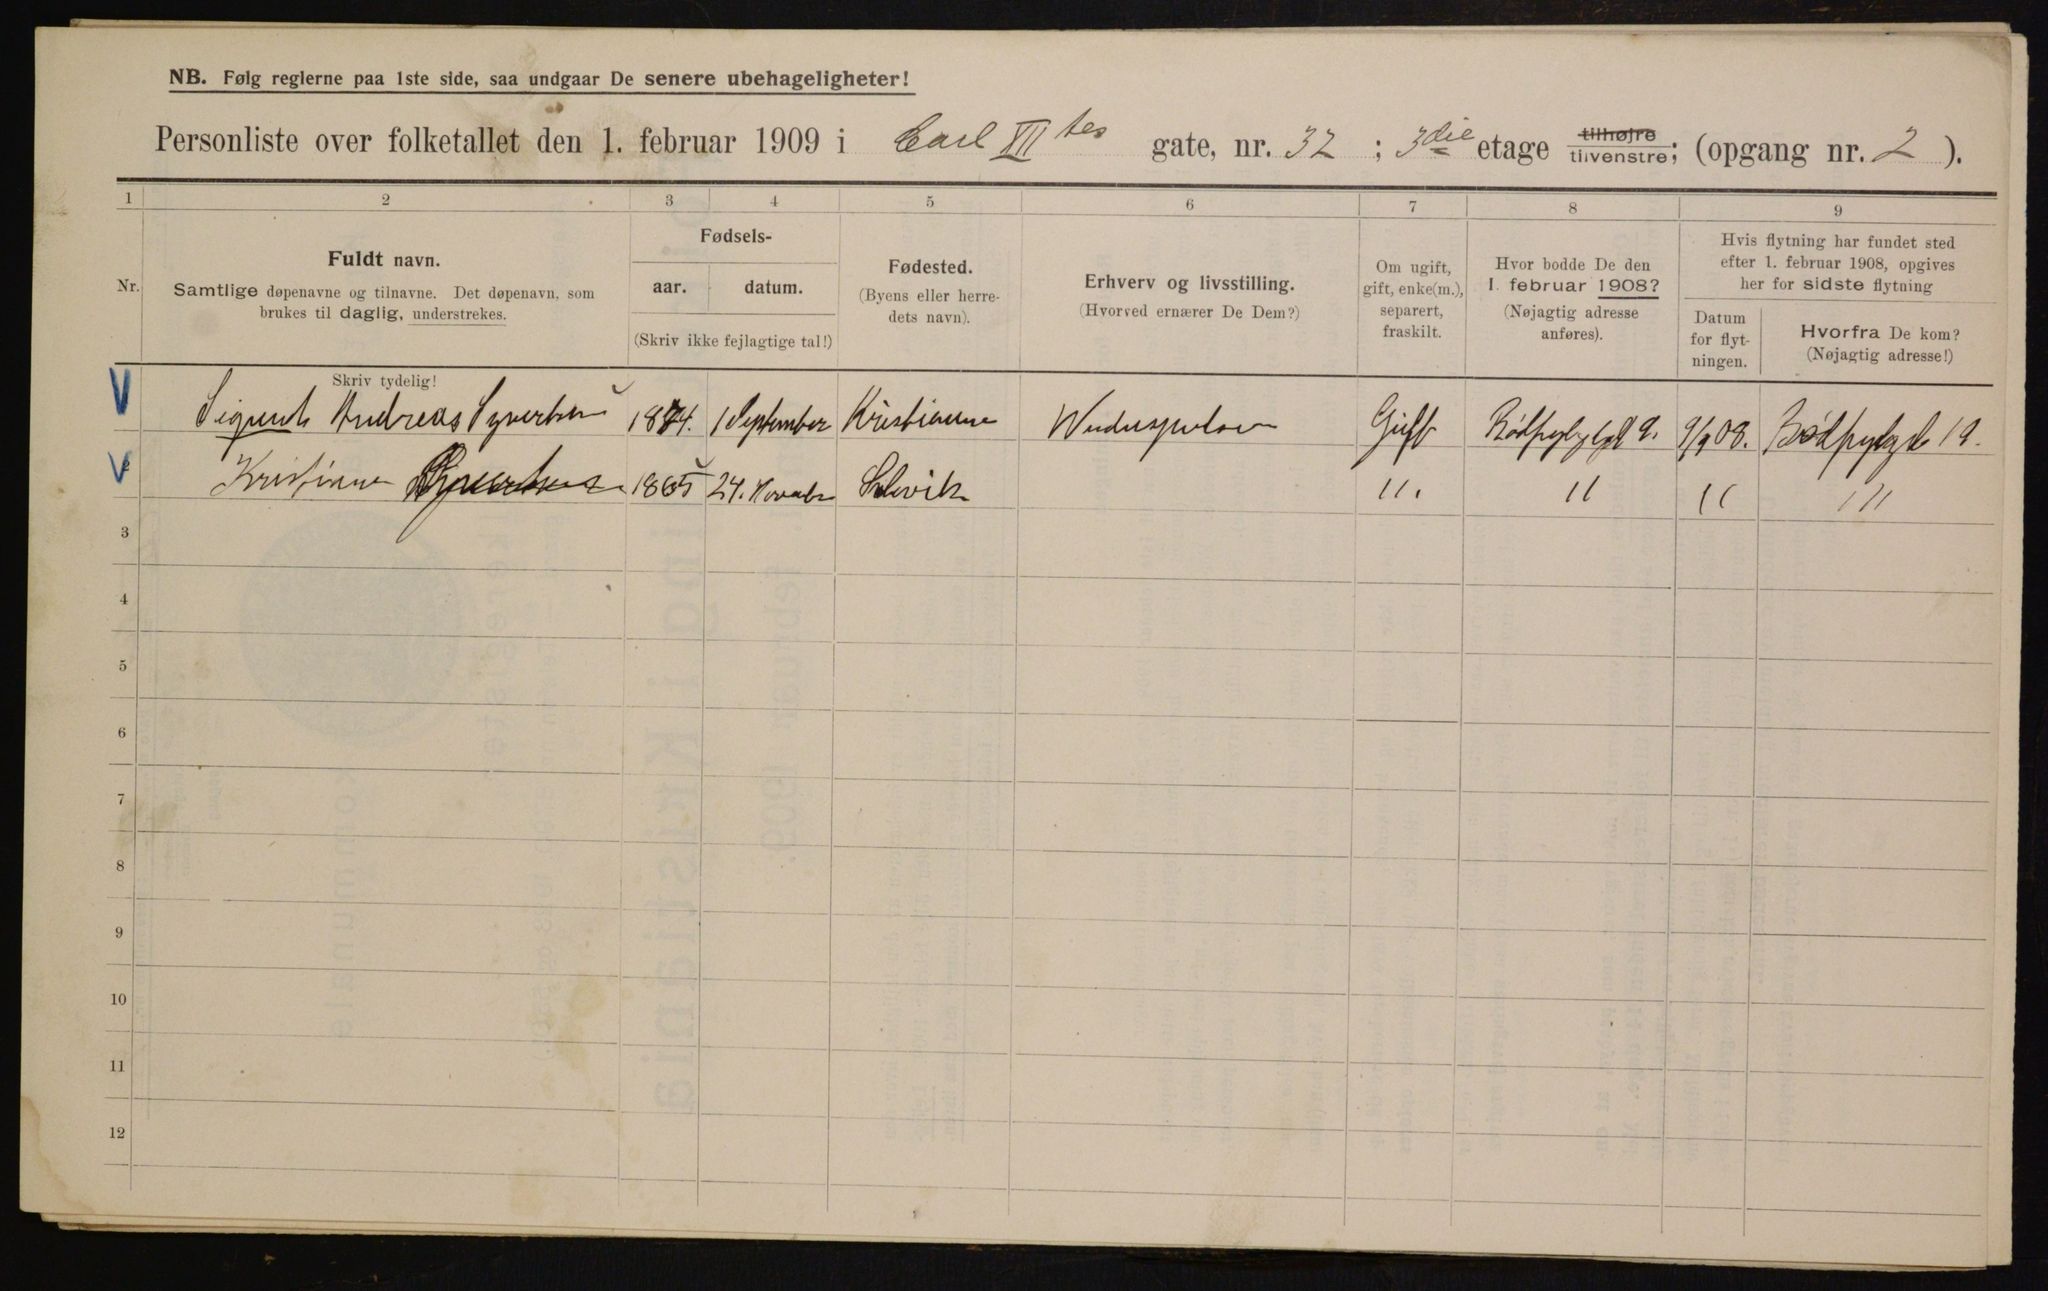 NB. Følg reglerne paa 1ste side, saa undgaar De senere ubehageligheter!
Personliste over folketallet den 1. februar 1909 i Carl XII tes gate, nr. 32 ; 3die etage tilhøjre tilvenstre; (opgang nr. 2 ).
1 2 3 4 5 6 7 8 9
Nr.
Fuldt navn.
Samtlige døpenavne og tilnavne. Det døpenavn, som
brukes til daglig, understrekes.
Skriv tydelig!
Fødsels-
aar. datum.
(Skriv ikke fejlagtige tal!)
Fødested.
(Byens eller herre-
dets navn).
Erhverv og livsstilling.
(Hvorved ernærer De Dem?)
Om ugift,
gift, enke(m.),
separert,
fraskilt.
Hvor bodde De den
1. februar 1908?
(Nøjagtig adresse
anføres).
Hvis flytning har fundet sted
efter 1. februar 1908, opgives
her for sidste flytning
Datum
for flyt-
ningen.
Hvorfra De kom?
(Nøjagtig adresse!)
Andreas Syvertsen 1874. 1 September Gift 9. 9/9 08. 19.
2 Kristiane Syvertsen 1865 24. " . " " "
3
4
5
6
7
8
9
10
11
12